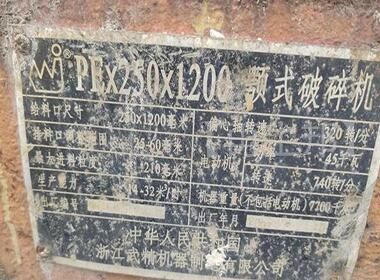 PEx250x1200 颚式破碎机
给料口尺寸 250x1200毫米 320转/分
25-60毫米 功率 45千瓦
最大进料粒度 210毫米 电动机 转速 740转/分
生产能力 14-32米 机器重量(不包括电动机) 7700千克
出厂编号 出厂年月
中华人民共和国
浙江武精机器制 有限公司